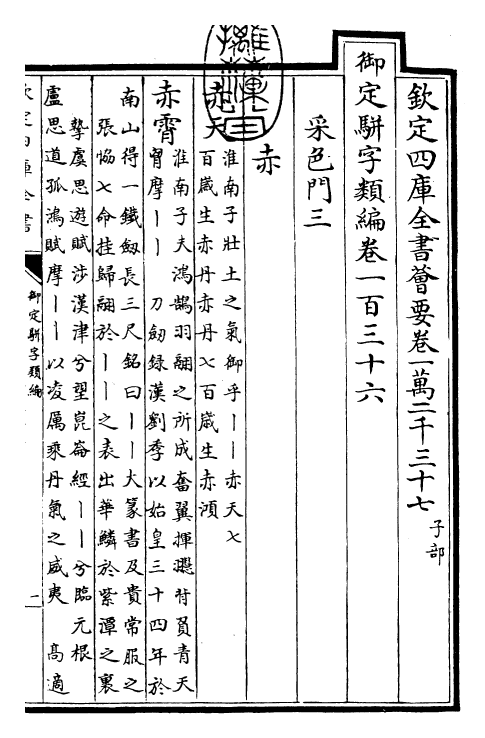 欽定四庫全書薈要卷一萬二千三十七 子部
御定駢字類編卷一百三十六
采色門三
赤
赤天 淮南子壯土之氣御乎丨丨赤天七
百歲生赤丹赤丹七百歲生赤澒
赤霄 淮南子夫鴻鵠羽翮之所成奮翼揮䎘背負青天
膺摩丨丨 刀劒録漢劉季以始皇三十四年於
南山得一鐵劒長三尺銘曰丨丨大篆書及貴常服之
張協七命挂歸翮於丨丨之表出華鱗於紫潭之裏
摯虞思遊賦涉漢津兮望崑崙經丨丨兮臨元根
盧思道孤鴻賦摩丨丨以凌厲乘丹氣之威夷 高適
欽定四庫全書
御定駢字類編
一